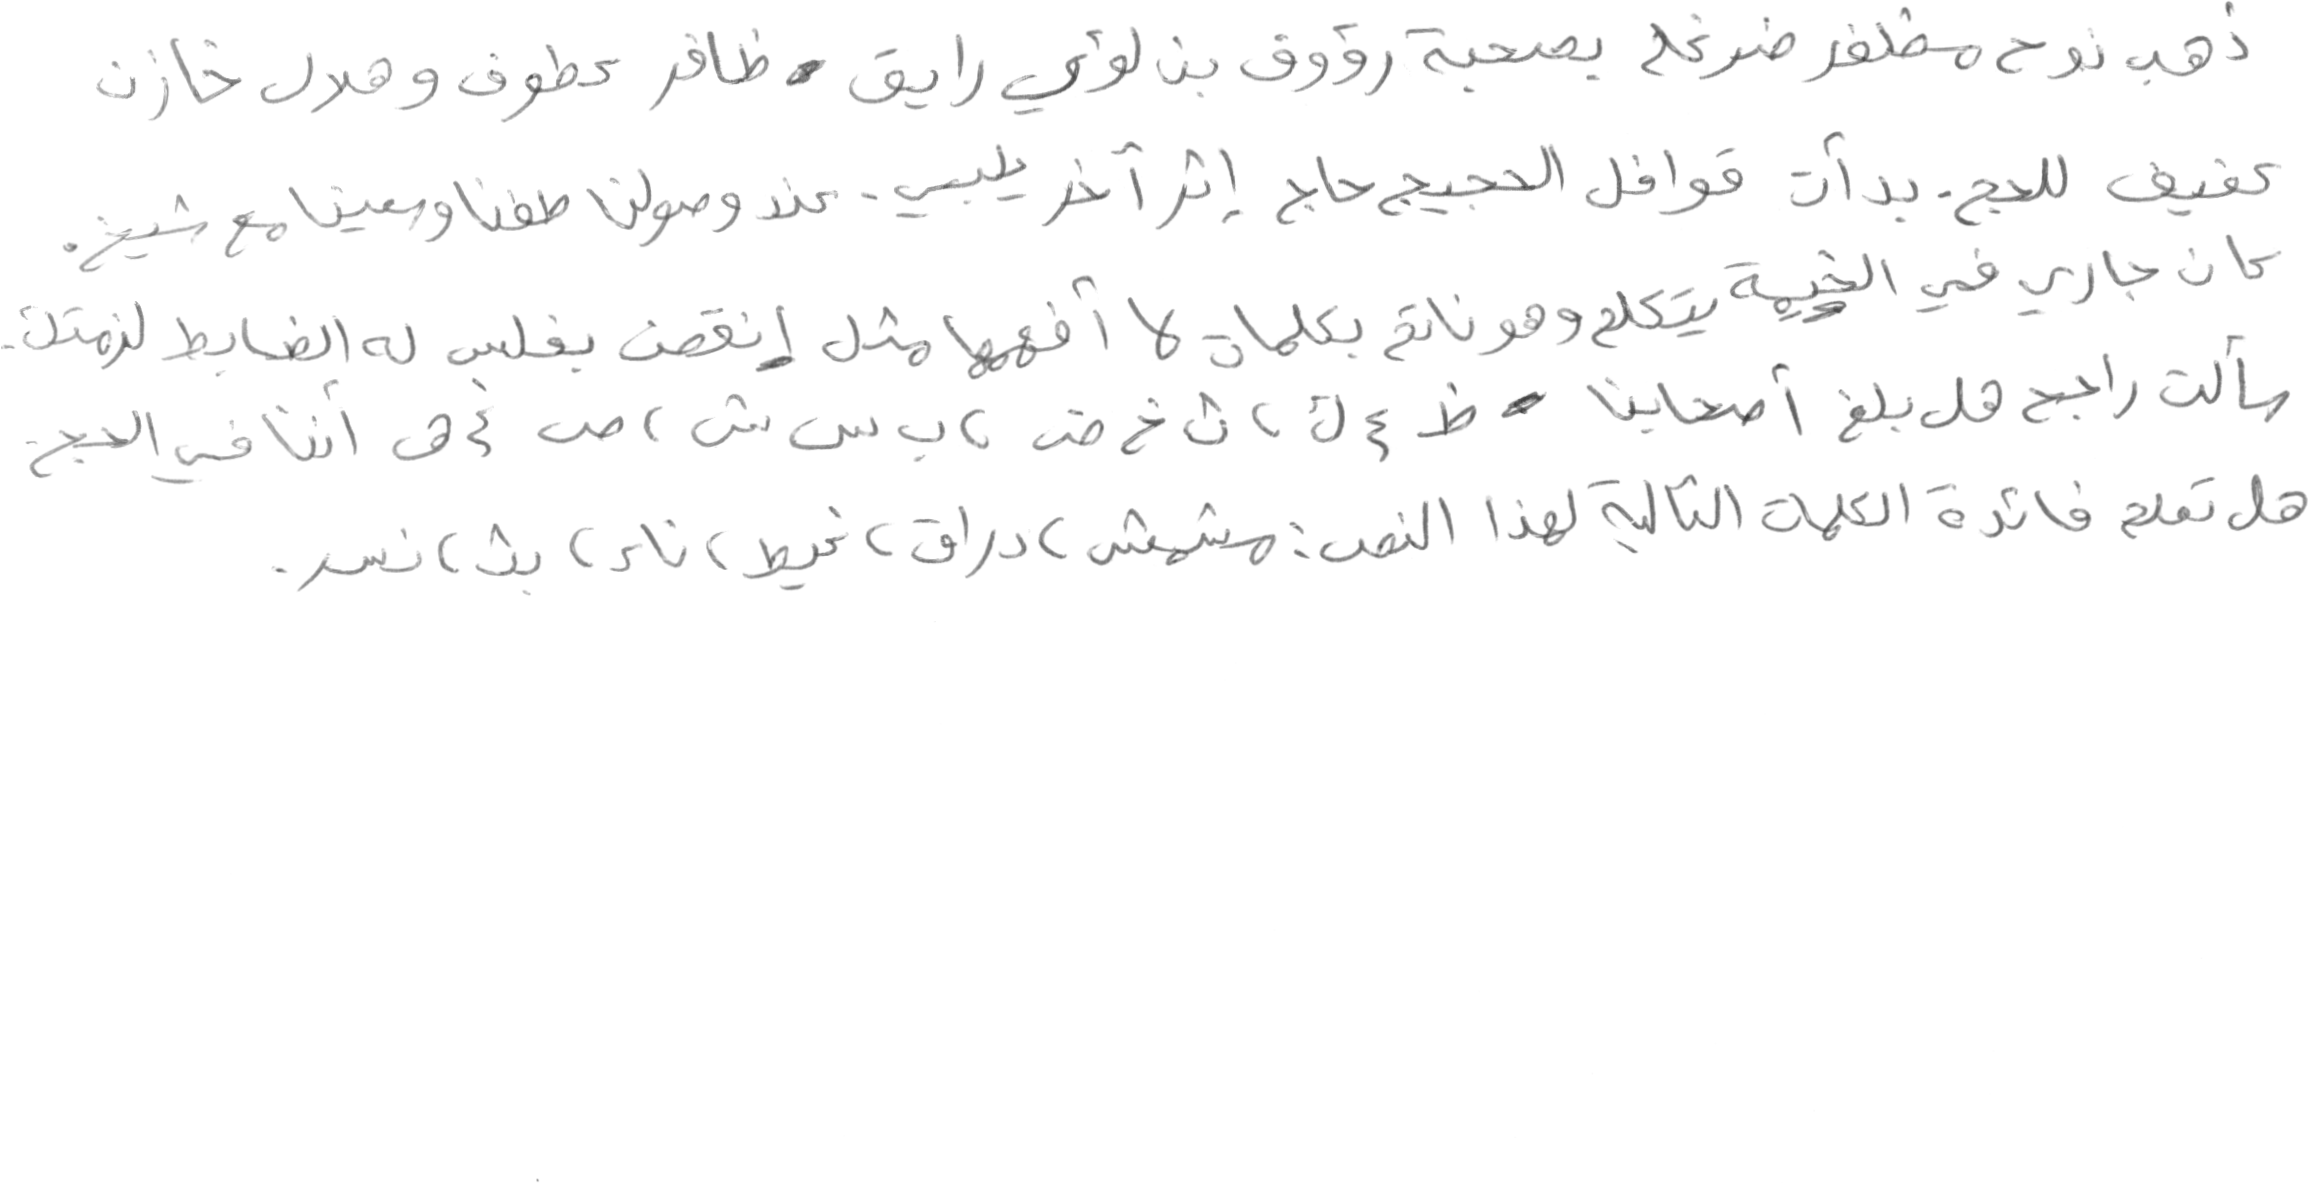 ذهب نوح مظفر ضرغم بصحبة رؤوف بن لؤي رايق ظافر عطوف وهلال خازن
عفيف للحج. بدأت قوافل الحجيج حاج إثر آخر يلبي. عند وصولنا طفنا وسعينا مع شيخ.
كان جاري في الخيمة يتكلم وهو نائم بكلمات لا أفهمها مثل إنقض بغلس له الضابط لزمتك.
سألت راجح هل بلغ أصحابنا ظ ع ك، ث خ ض، ب س ش، ص غ هـ أننا في الحج.
هل تعلم فائدة الكلمات التالية لهذا النص: مشمش، دراق، غيط، ناء، بث، نسر.